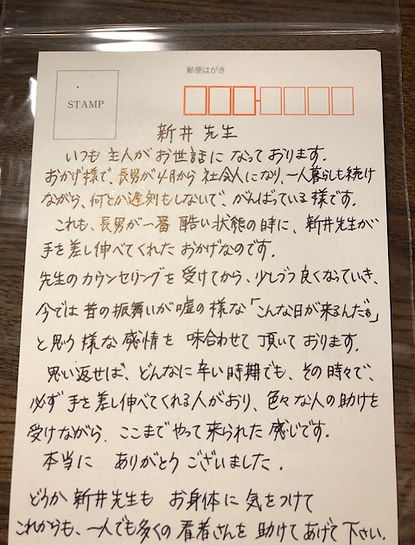 郵便はがき
STAMP
新井先生
いつも主人がお世話になっております。
おかげ様で、長男が4月から社会人になり、一人暮らしも続け
ながら、何とか遅刻もしないで、がんばっている様です。
これも、長男が一番酷い状態の時に、新井先生が
手を差し伸べてくれたおかげなのです。
先生のカウンセリングを受けてから、少しづつ良くなっていき、
今では昔の振舞いが嘘の様な「こんな日が来るんだぁ」
と思う様な感情を味合わせて頂いております。
思い返せば、どんなに辛い時期でも、その時々で、
必ず手を差し伸べてくれる人がおり、色々な人の助けを
受けながら、ここまでやって来られた感じです。
本当にありがとうございました。
どうか新井先生もお身体に気をつけて
これからも、一人でも多くの患者さんを助けてあげて下さい。